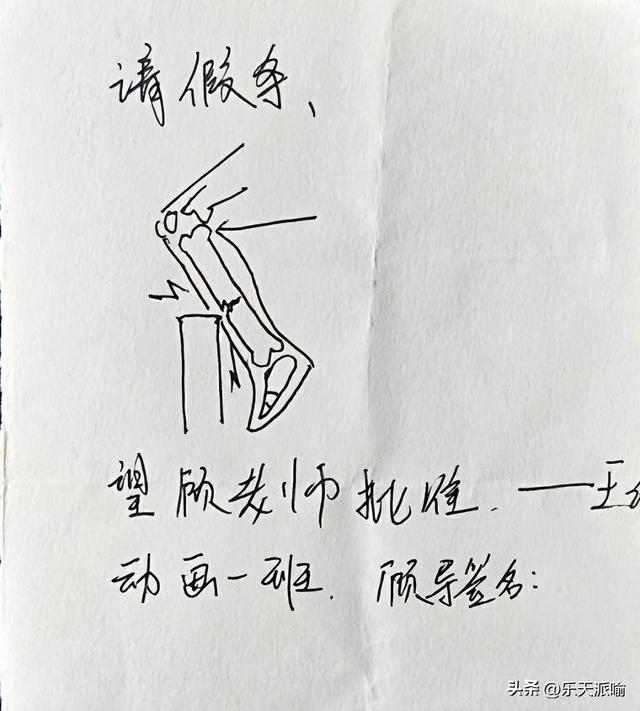 请假条、
望顾老师批准.——王
动画一班. 顾导签名:
头条 @乐天派喻